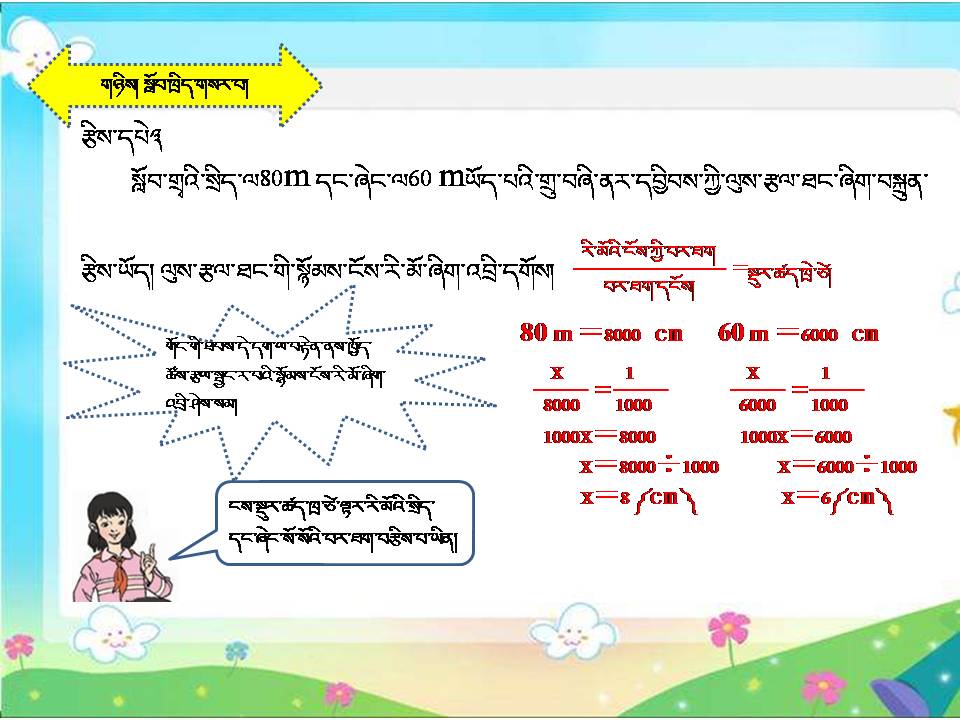 གཉིས། སློབ་ཁྲིད་གསར་བ།
རྩིས་དཔེ༣
སློབ་གྲྭའི་སྲིད་ལ80m དང་ཞེང་ལ60 mཡོད་པའི་གྲུ་བཞི་ནར་དབྱིབས་ཀྱི་ལུས་རྩལ་ཐང་ཞིག་བསྐྲུན་
རྩིས་ཡོད། ལུས་རྩལ་ཐང་གི་སྙོམས་ངོས་རི་མོ་ཞིག་འབྲི་དགོས།
རི་མོའི་ངོས་ཀྱི་བར་ཐག
བར་ཐག་དངོས།
=སྡུར་ཚད་ཁྲེ་ཙེ།
གོང་གི་ཐབས་དེ་དག་ལ་བརྟེན་ནས་ཁྱོད་
ཚོས་རྩལ་སྦྱང་ར་བའི་སྙོམས་ངོས་རི་མོ་ཞིག་
འབྲི་ཤེས་སམ།
80 m =8000 cm
60 m =6000 cm
X/8000 = 1/1000
X/6000 = 1/1000
1000X=8000
1000X=6000
X=8000÷1000
X=6000÷1000
X=8(cm)
X=6(cm)
ངས་སྡུར་ཚད་ཁྲ་ཙེ་ལྟར་རི་མོའི་སྲིད་
དང་ཞེང་སོ་སོའི་བར་ཐག་བརྩིས་པ་ཡིན།